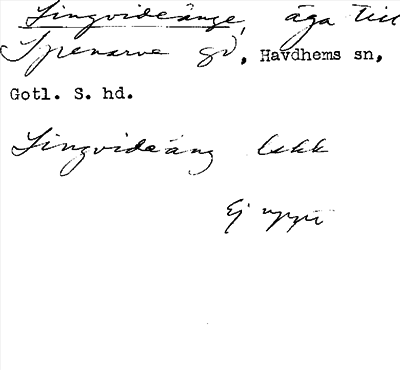 Lingvideänge, äga till
Spenarve gd, Havdhems sn,
Gotl. S. hd.
Lingvideäng lekk
Ej uppt